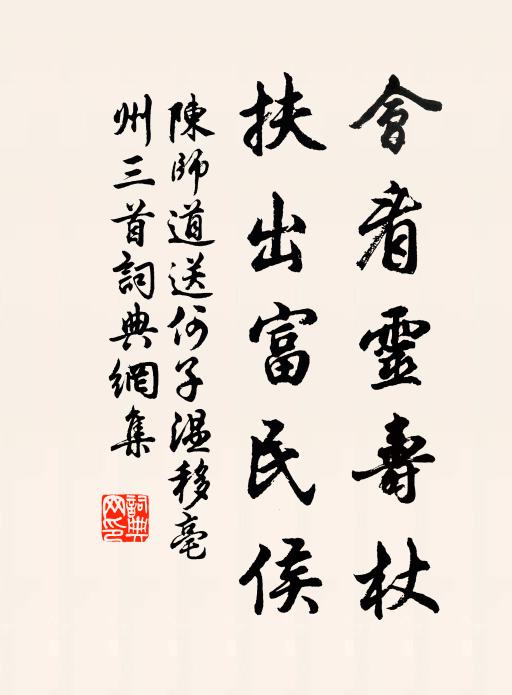 會看靈壽杖
扶出富民侯
陳師道送何子溫移亳
州三首詞典網集
詞典
网印